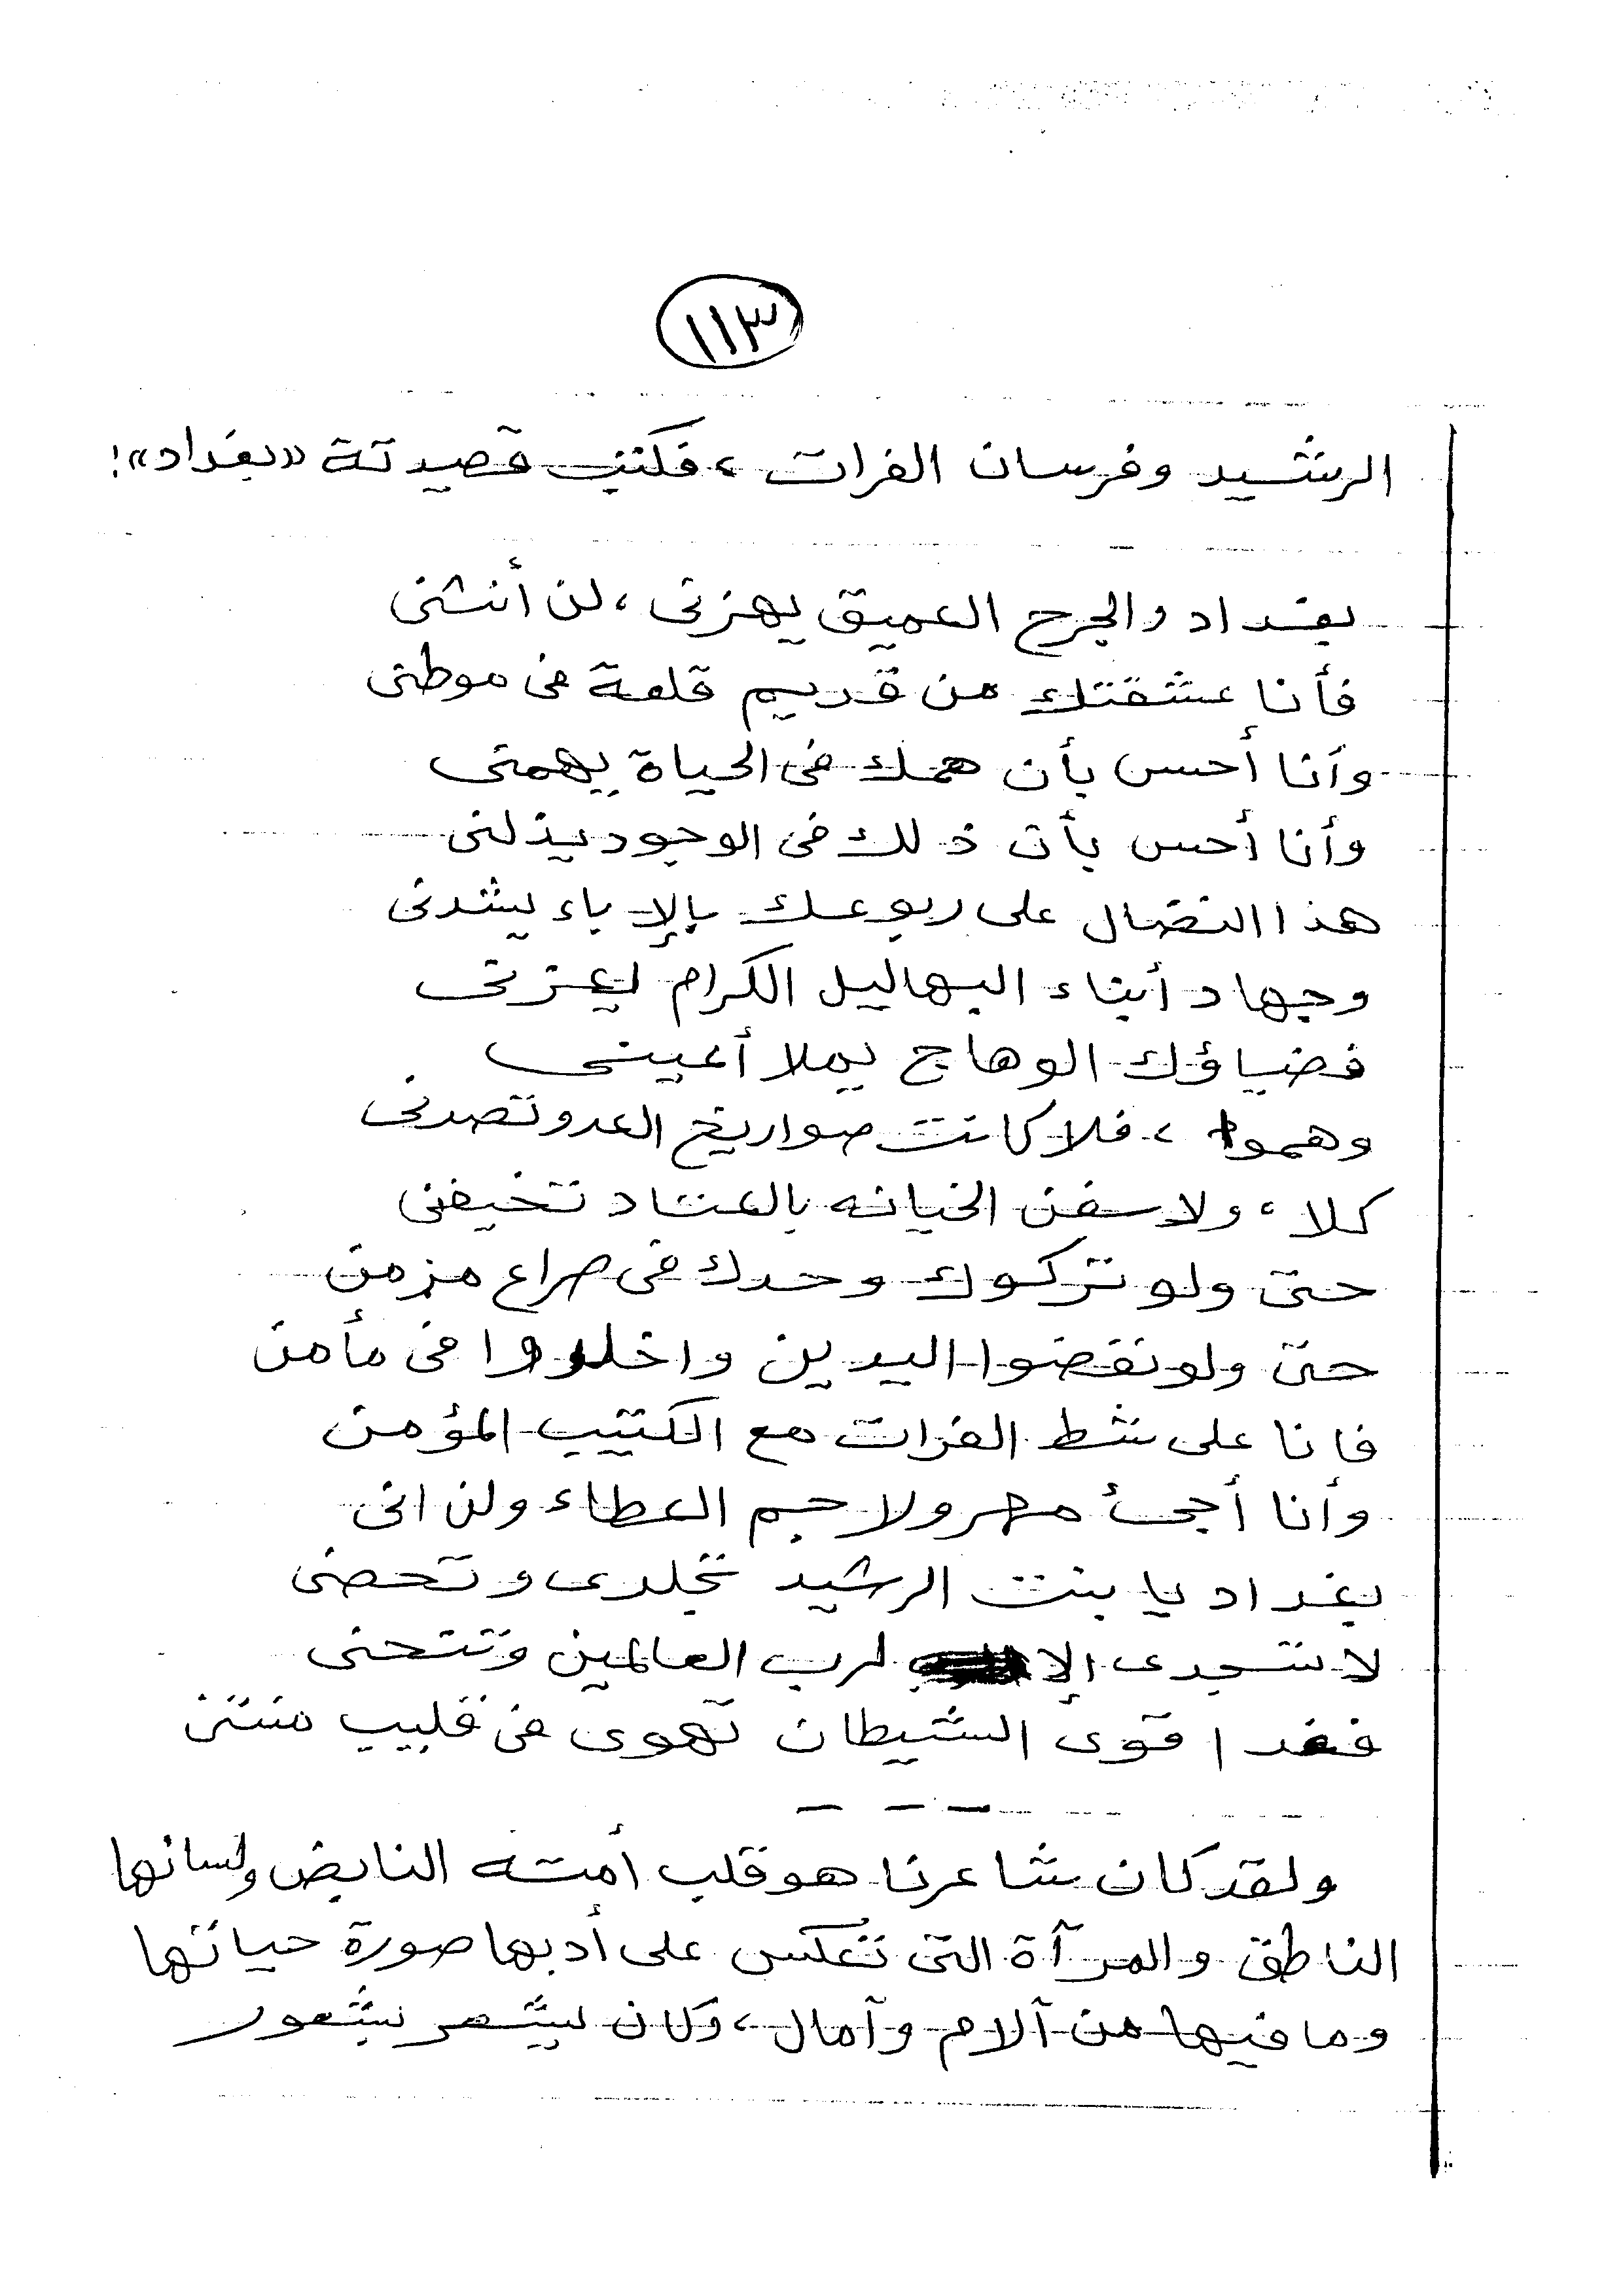 ١١٣
الرشيد وفرسان الفرات ، فكتب قصيدتة «بغداد»:
بغداد والجرح العميق يهزنى ، لن أنثنى
فأنا عشقتك من قديم قلعة فى موطنى
وأنا أحس بأن همك فى الحياة يهمنى
وأنا أحس بأن ذلك فى الوجود يذلنى
هذا النضال على ربوعك بالإباء يشدنى
وجهاد أبناء البهاليل الكرام يعزنى
فضياؤك الوهاج يملا أعينى
وهموا ، فلا كانت صواريخ العدو تصدنى
كلا ، ولا سفن الخيانه بالعتاد تخيفنى
حتى ولو تركوك وحدك فى صراع مزمن
حتى ولو نفضوا اليدين واخلدوا فى مأمن
فانا على شط الفرات مع الكتيب المؤمن
وأنا أجئ مهرولا جم العطاء ولن انى
بغداد يا بنت الرشيد تجلدى وتحصنى
لا تسجدى إلا لرب العالمين وتنحنى
فغدا قوى الشيطان تهوى فى قليب منتن
ولقد كان شاعرنا هو قلب أمته النابض ولسانها
الناطق والمرآة التى تنعكس على أدبها صورة حياتها
وما فيها من آلام وآمال ، وكان يشعر بشعور